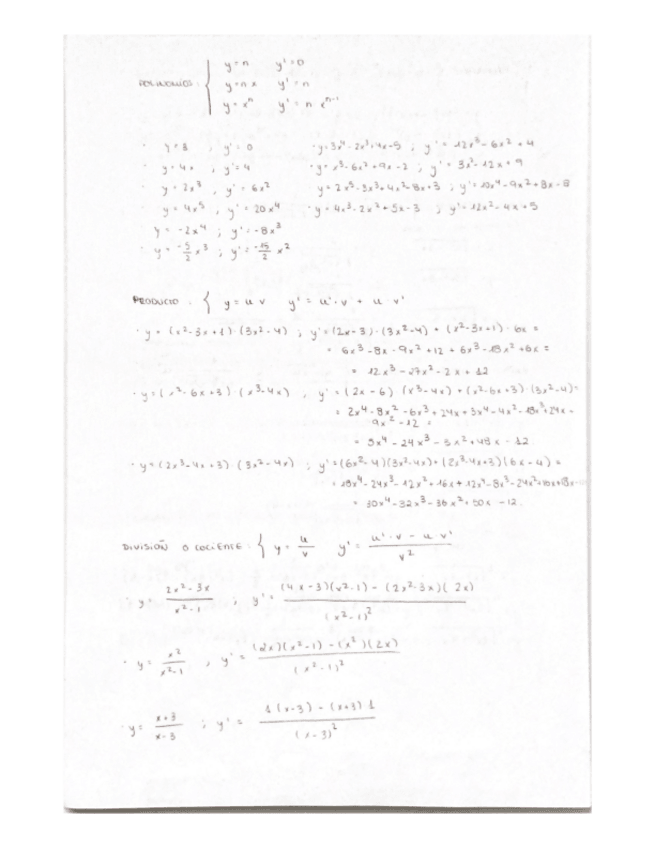 y=n y'=0
POLINOMIOS: { y=nx y'=n
y=xⁿ y'=n xⁿ⁻¹
· y=8 ; y'=0 · y=3x⁴-2x³+4x-5 ; y'=12x³-6x²+4
· y=4x ; y'=4 · y=x³-6x²+9x-2 ; y'=3x²-12x+9
· y=2x³ ; y'=6x² y=2x⁵-3x³+4x²-8x+3 ; y'=10x⁴-9x²+8x-8
· y=4x⁵ ; y'=20x⁴ · y=4x³-2x²+5x-3 ; y'=12x²-4x+5
y=-2x⁴ ; y'=-8x³
· y=-5/2 x³ ; y'=-15/2 x²
PRODUCTO : { y=u v y'=u'·v + u·v'
· y=(x²-3x+1)·(3x²-4) ; y'=(2x-3)·(3x²-4)+(x²-3x+1)·6x =
= 6x³-8x-9x²+12+6x³-18x²+6x =
= 12x³-27x²-2x+12
· y=(x²-6x+3)·(x³-4x) ; y'=(2x-6)·(x³-4x)+(x²-6x+3)·(3x²-4)=
= 2x⁴-8x²-6x³+24x+3x⁴-4x²-18x³+24x+
9x²-12 =
= 5x⁴-24x³-3x²+48x-12
· y=(2x³-4x+3)·(3x²-4x) ; y'=(6x²-4)(3x²-4x)+(2x³-4x+3)(6x-4)=
= 18x⁴-24x³-12x²+16x+12x⁴-8x³-24x²+16x+18x-
= 30x⁴-32x³-36x²+50x-12.
DIVISIÓN O COCIENTE : { y = u/v y' = (u'·v - u·v')/v²
· y= (2x²-3x)/(x²-1) ; y'= ((4x-3)(x²-1)-(2x²-3x)(2x))/(x²-1)²
· y= x²/(x²-1) ; y'= ((2x)(x²-1)-(x²)(2x))/(x²-1)²
· y= (x+3)/(x-3) ; y'= (1(x-3)-(x+3)·1)/(x-3)²